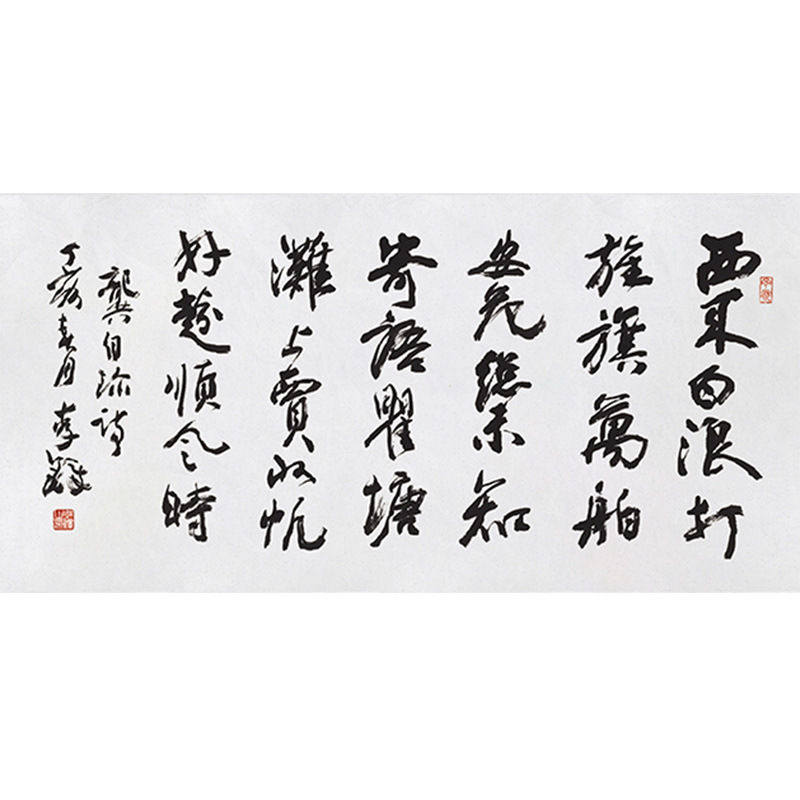 西来白浪打
旌旗萬舶
安危總未知
寄語瞿塘
灘上賈收帆
好趁順风時
龔自珍詩
丁亥春月李鐸